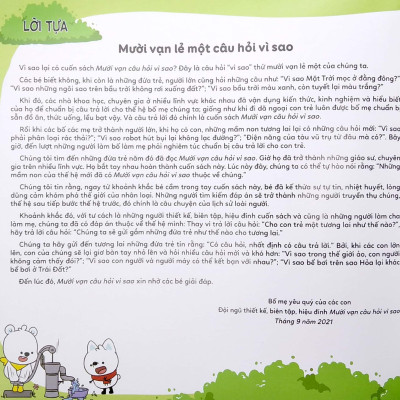 LỜI TỰA
Mười vạn lẻ một câu hỏi vì sao
Vì sao lại có cuốn sách Mười vạn câu hỏi vì sao? Đây là câu hỏi "vì sao" thứ mười vạn lẻ một của chúng ta.
Các bé biết không, khi còn là những đứa trẻ, người lớn cũng hỏi những câu như: "Vì sao Mặt Trời mọc ở đằng đông?"
"Vì sao những ngôi sao trên bầu trời không rơi xuống đất?"; "Vì sao bầu trời màu xanh, còn tuyết lại màu trắng?"
Khi đó, các nhà khoa học, chuyên gia ở nhiều lĩnh vực khác nhau đã vận dụng kiến thức, kinh nghiệm và hiểu biết
của họ để chuẩn bị câu trả lời cho thế hệ bố mẹ chúng ta; giống như khi đi dã ngoại con trẻ luôn được bố mẹ chuẩn bị
sẵn đồ ăn, thức uống, lều bạt vậy. Và câu trả lời đó chính là cuốn sách Mười vạn câu hỏi vì sao.
Rồi khi các bố các mẹ trở thành người lớn, khi họ có con, những mầm non tương lai lại có những câu hỏi mới: "Vì sao
phải phân loại rác thải?"; "Vì sao robot hút bụi lại không lạc đường?"; "Điện năng của tàu vũ trụ từ đâu mà có?". Bây
giờ, đến lượt những người làm bố làm mẹ phải nghiêm túc chuẩn bị câu trả lời cho con trẻ.
Chúng tôi tìm đến những đứa trẻ năm đó đã đọc Mười vạn câu hỏi vì sao. Giờ họ đã trở thành những giáo sư, chuyên
gia trên nhiều lĩnh vực. Họ bắt tay nhau hoàn thành cuốn sách này. Lúc này đây, chúng ta có thể tự hào nói rằng: "Những
mầm non của thế hệ mới đã có Mười vạn câu hỏi vì sao thuộc về chúng."
Chúng tôi tin rằng, ngay từ khoảnh khắc bé cầm trong tay cuốn sách này, bé đã kế thừa sự tự tin, nhiệt huyết, lòng
dũng cảm khám phá thế giới của nhân loại. Những người tìm kiếm đáp án sẽ trở thành những người truyền thụ chúng,
thế hệ sau tiếp bước thế hệ trước, đó chính là câu chuyện của lịch sử loài người.
Khoảnh khắc đó, với tư cách là những người thiết kế, biên tập, hiệu đính cuốn sách và cũng là những người làm cha
làm mẹ, chúng ta đã có đáp án thuộc về thế hệ mình: Thay vì trả lời câu hỏi: "Cho con trẻ một tương lai như thế nào?",
hãy trả lời câu hỏi: "Chúng ta sẽ gửi gắm những đứa trẻ như thế nào cho tương lai."
Chúng ta hãy gửi đến tương lai những đứa trẻ tin rằng: "Có câu hỏi, nhất định có câu trả lời." Bởi, khi các con lớn
lên, con của chúng sẽ lại giơ bàn tay nhỏ lên và hỏi nhiều câu hỏi mới và khó hơn: "Vì sao trong thế giới ảo, con người
không cảm thấy đói?"; "Vì sao con người và người máy có thể kết bạn với nhau?"; "Vì sao bể bơi trên sao Hỏa lại khác
bể bơi ở Trái Đất?"
Đến lúc đó, Mười vạn câu hỏi vì sao xin nhờ các bé giải đáp.
Bố mẹ yêu quý của các con
Đội ngũ thiết kế, biên tập, hiệu đính Mười vạn câu hỏi vì sao
Tháng 9 năm 2021